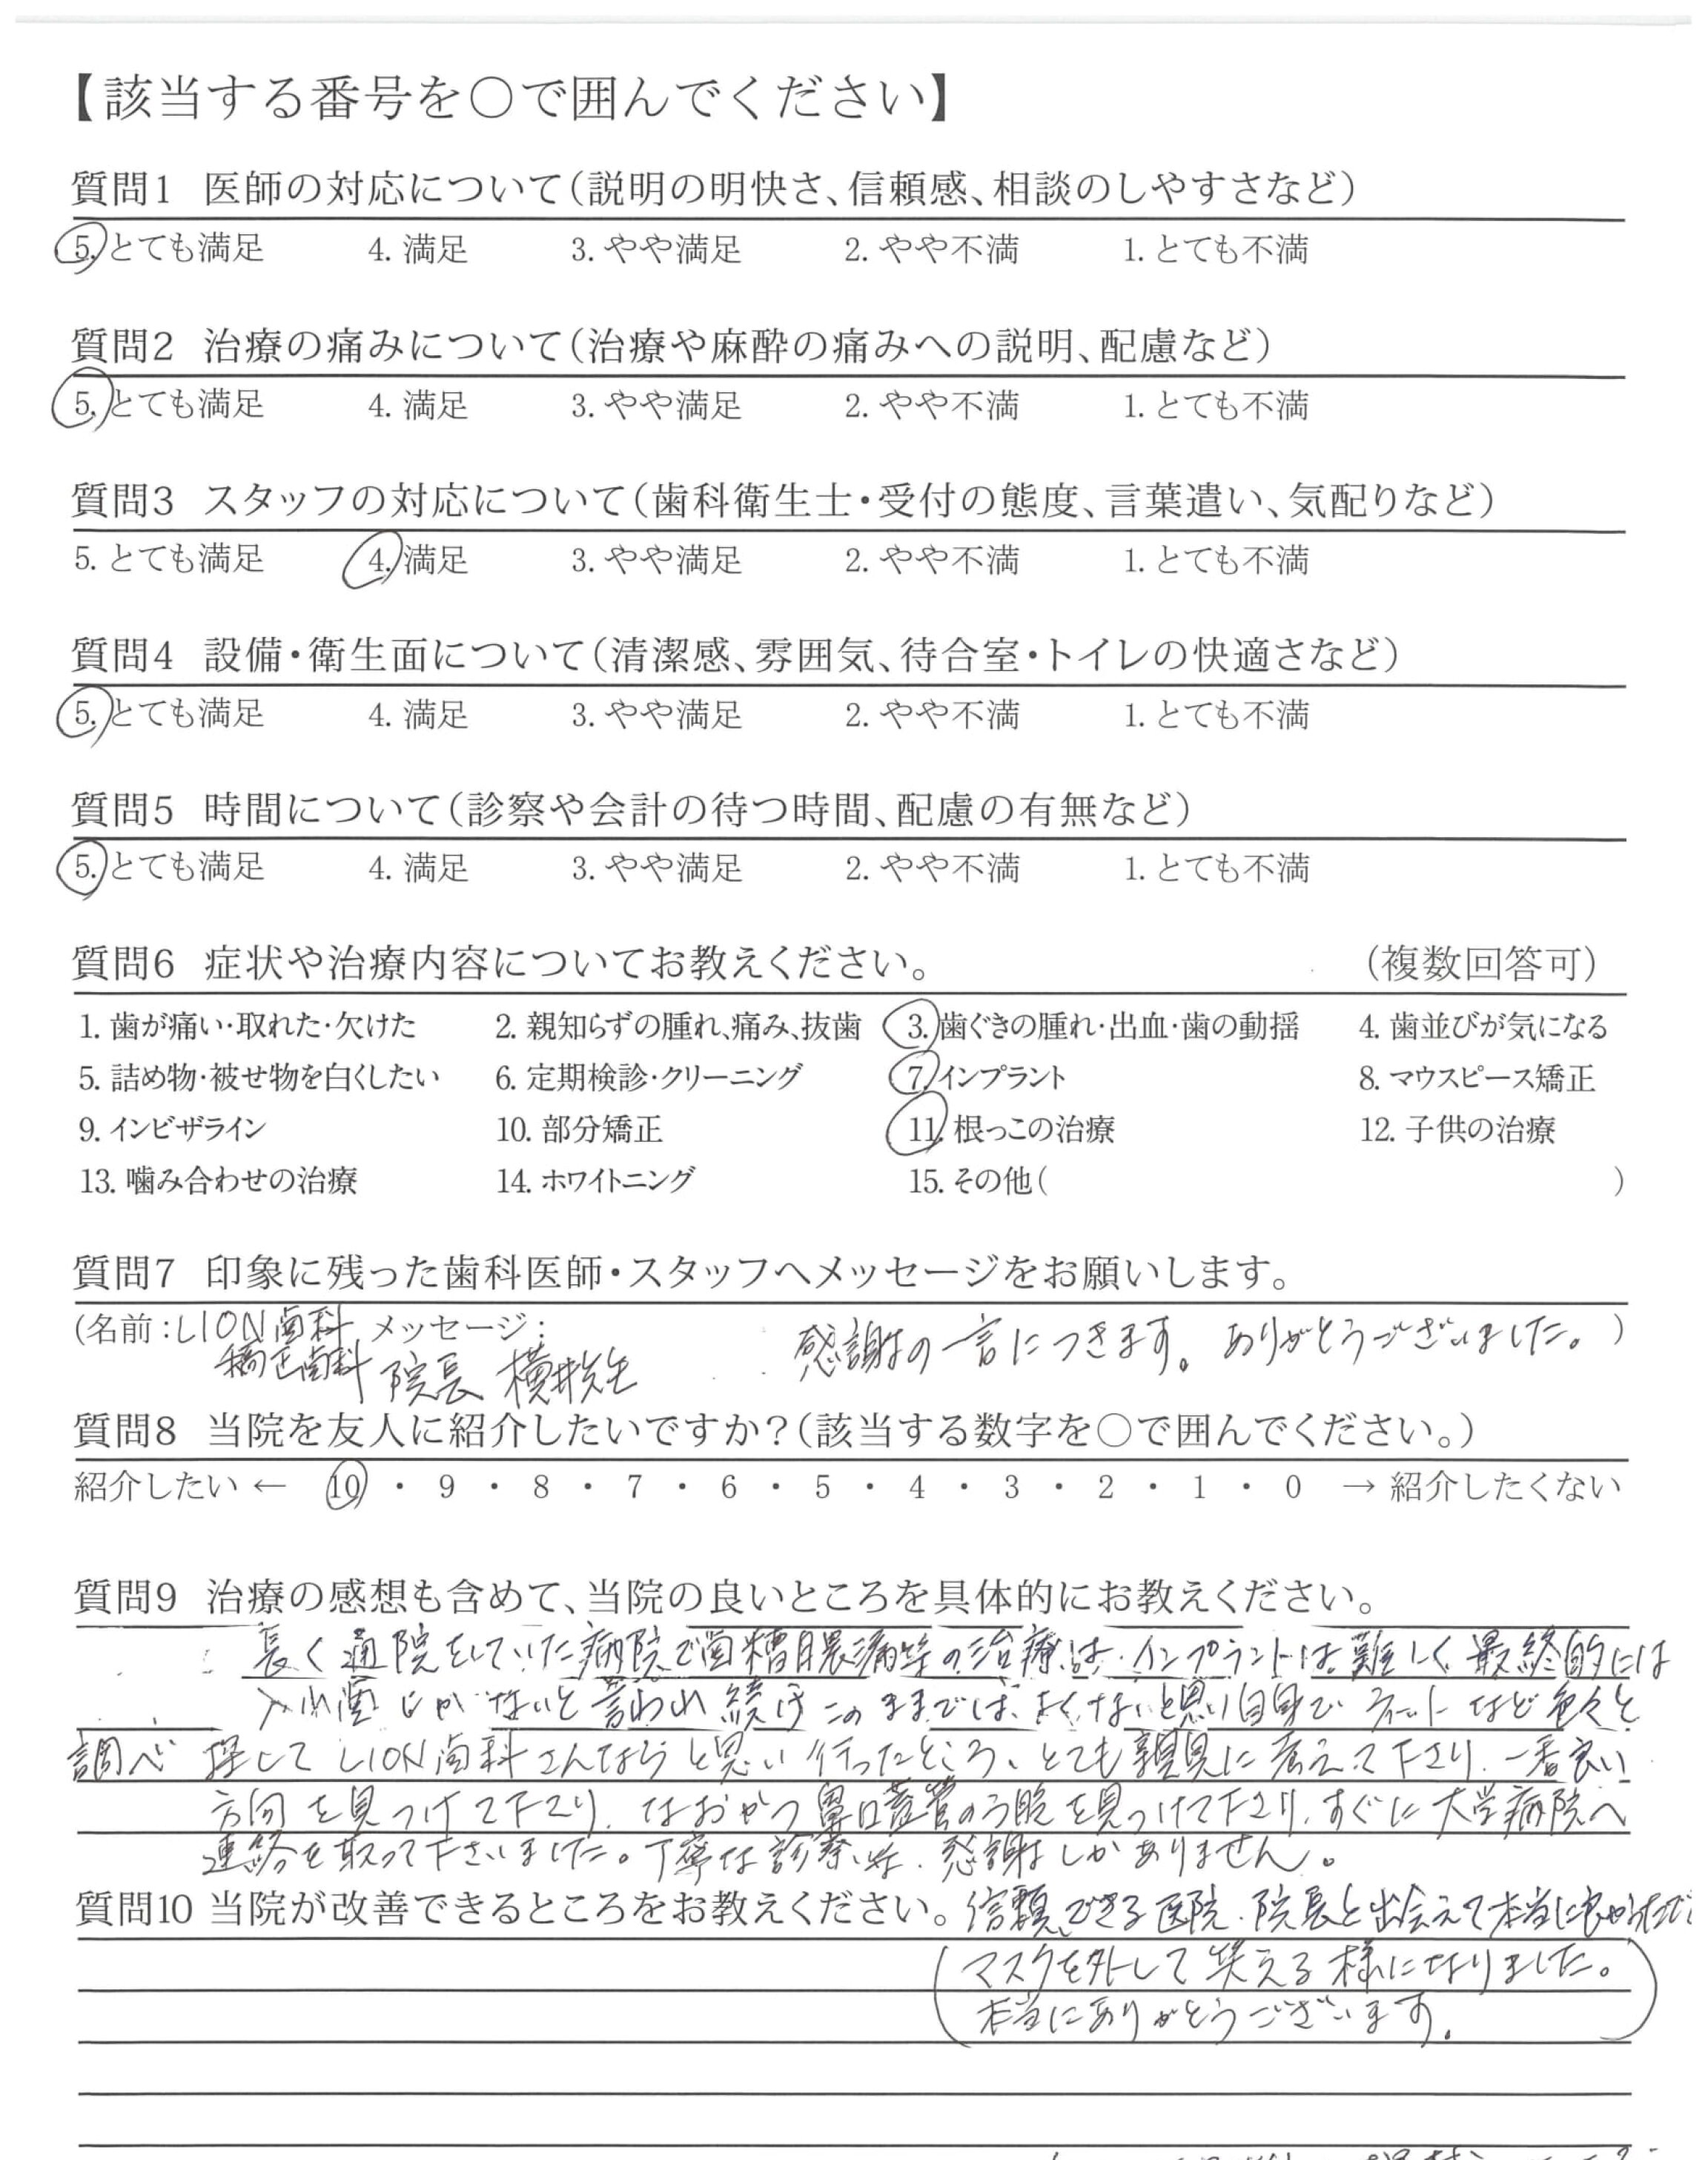 【該当する番号を○で囲んでください】
質問1 医師の対応について(説明の明快さ、信頼感、相談のしやすさなど)
5. とても満足 4. 満足 3. やや満足 2. やや不満 1. とても不満
質問2 治療の痛みについて(治療や麻酔の痛みへの説明、配慮など)
5. とても満足 4. 満足 3. やや満足 2. やや不満 1. とても不満
質問3 スタッフの対応について(歯科衛生士・受付の態度、言葉遣い、気配りなど)
5. とても満足 4. 満足 3. やや満足 2. やや不満 1. とても不満
質問4 設備・衛生面について(清潔感、雰囲気、待合室・トイレの快適さなど)
5. とても満足 4. 満足 3. やや満足 2. やや不満 1. とても不満
質問5 時間について(診察や会計の待つ時間、配慮の有無など)
5. とても満足 4. 満足 3. やや満足 2. やや不満 1. とても不満
質問6 症状や治療内容についてお教えください。 (複数回答可)
1. 歯が痛い・取れた・欠けた 2. 親知らずの腫れ、痛み、抜歯 3. 歯ぐきの腫れ・出血・歯の動揺 4. 歯並びが気になる
5. 詰め物・被せ物を白くしたい 6. 定期検診・クリーニング 7. インプラント 8. マウスピース矯正
9. インビザライン 10. 部分矯正 11. 根っこの治療 12. 子供の治療
13. 噛み合わせの治療 14. ホワイトニング 15. その他( )
質問7 印象に残った歯科医師・スタッフへメッセージをお願いします。
(名前:LION歯科 メッセージ: 感謝の一言につきます。ありがとうございました。)
矯正歯科 院長 横井先生
質問8 当院を友人に紹介したいですか?(該当する数字を○で囲んでください。)
紹介したい ← 10 ・ 9 ・ 8 ・ 7 ・ 6 ・ 5 ・ 4 ・ 3 ・ 2 ・ 1 ・ 0 → 紹介したくない
質問9 治療の感想も含めて、当院の良いところを具体的にお教えください。
長く通院をしていた病院で歯槽膿漏等の治療は、インプラントは難しく最終的には
入れ歯しかないと言われ続け このままでは、よくないと思い自身で ネットなど色々と
調べ 探して LION歯科さんならと思い行ったところ、とても親身に考えて下さり、一番良い
方向を見つけて下さり、なおかつ鼻口蓋管のう胞を見つけて下さり、すぐに大学病院へ
連絡を取って下さいました。丁寧な診察は、感謝しかありません。
質問10 当院が改善できるところをお教えください。信頼できる医院、院長と出会えて本当に良かったです
マスクを外して笑える様になりました。
本当にありがとうございます。